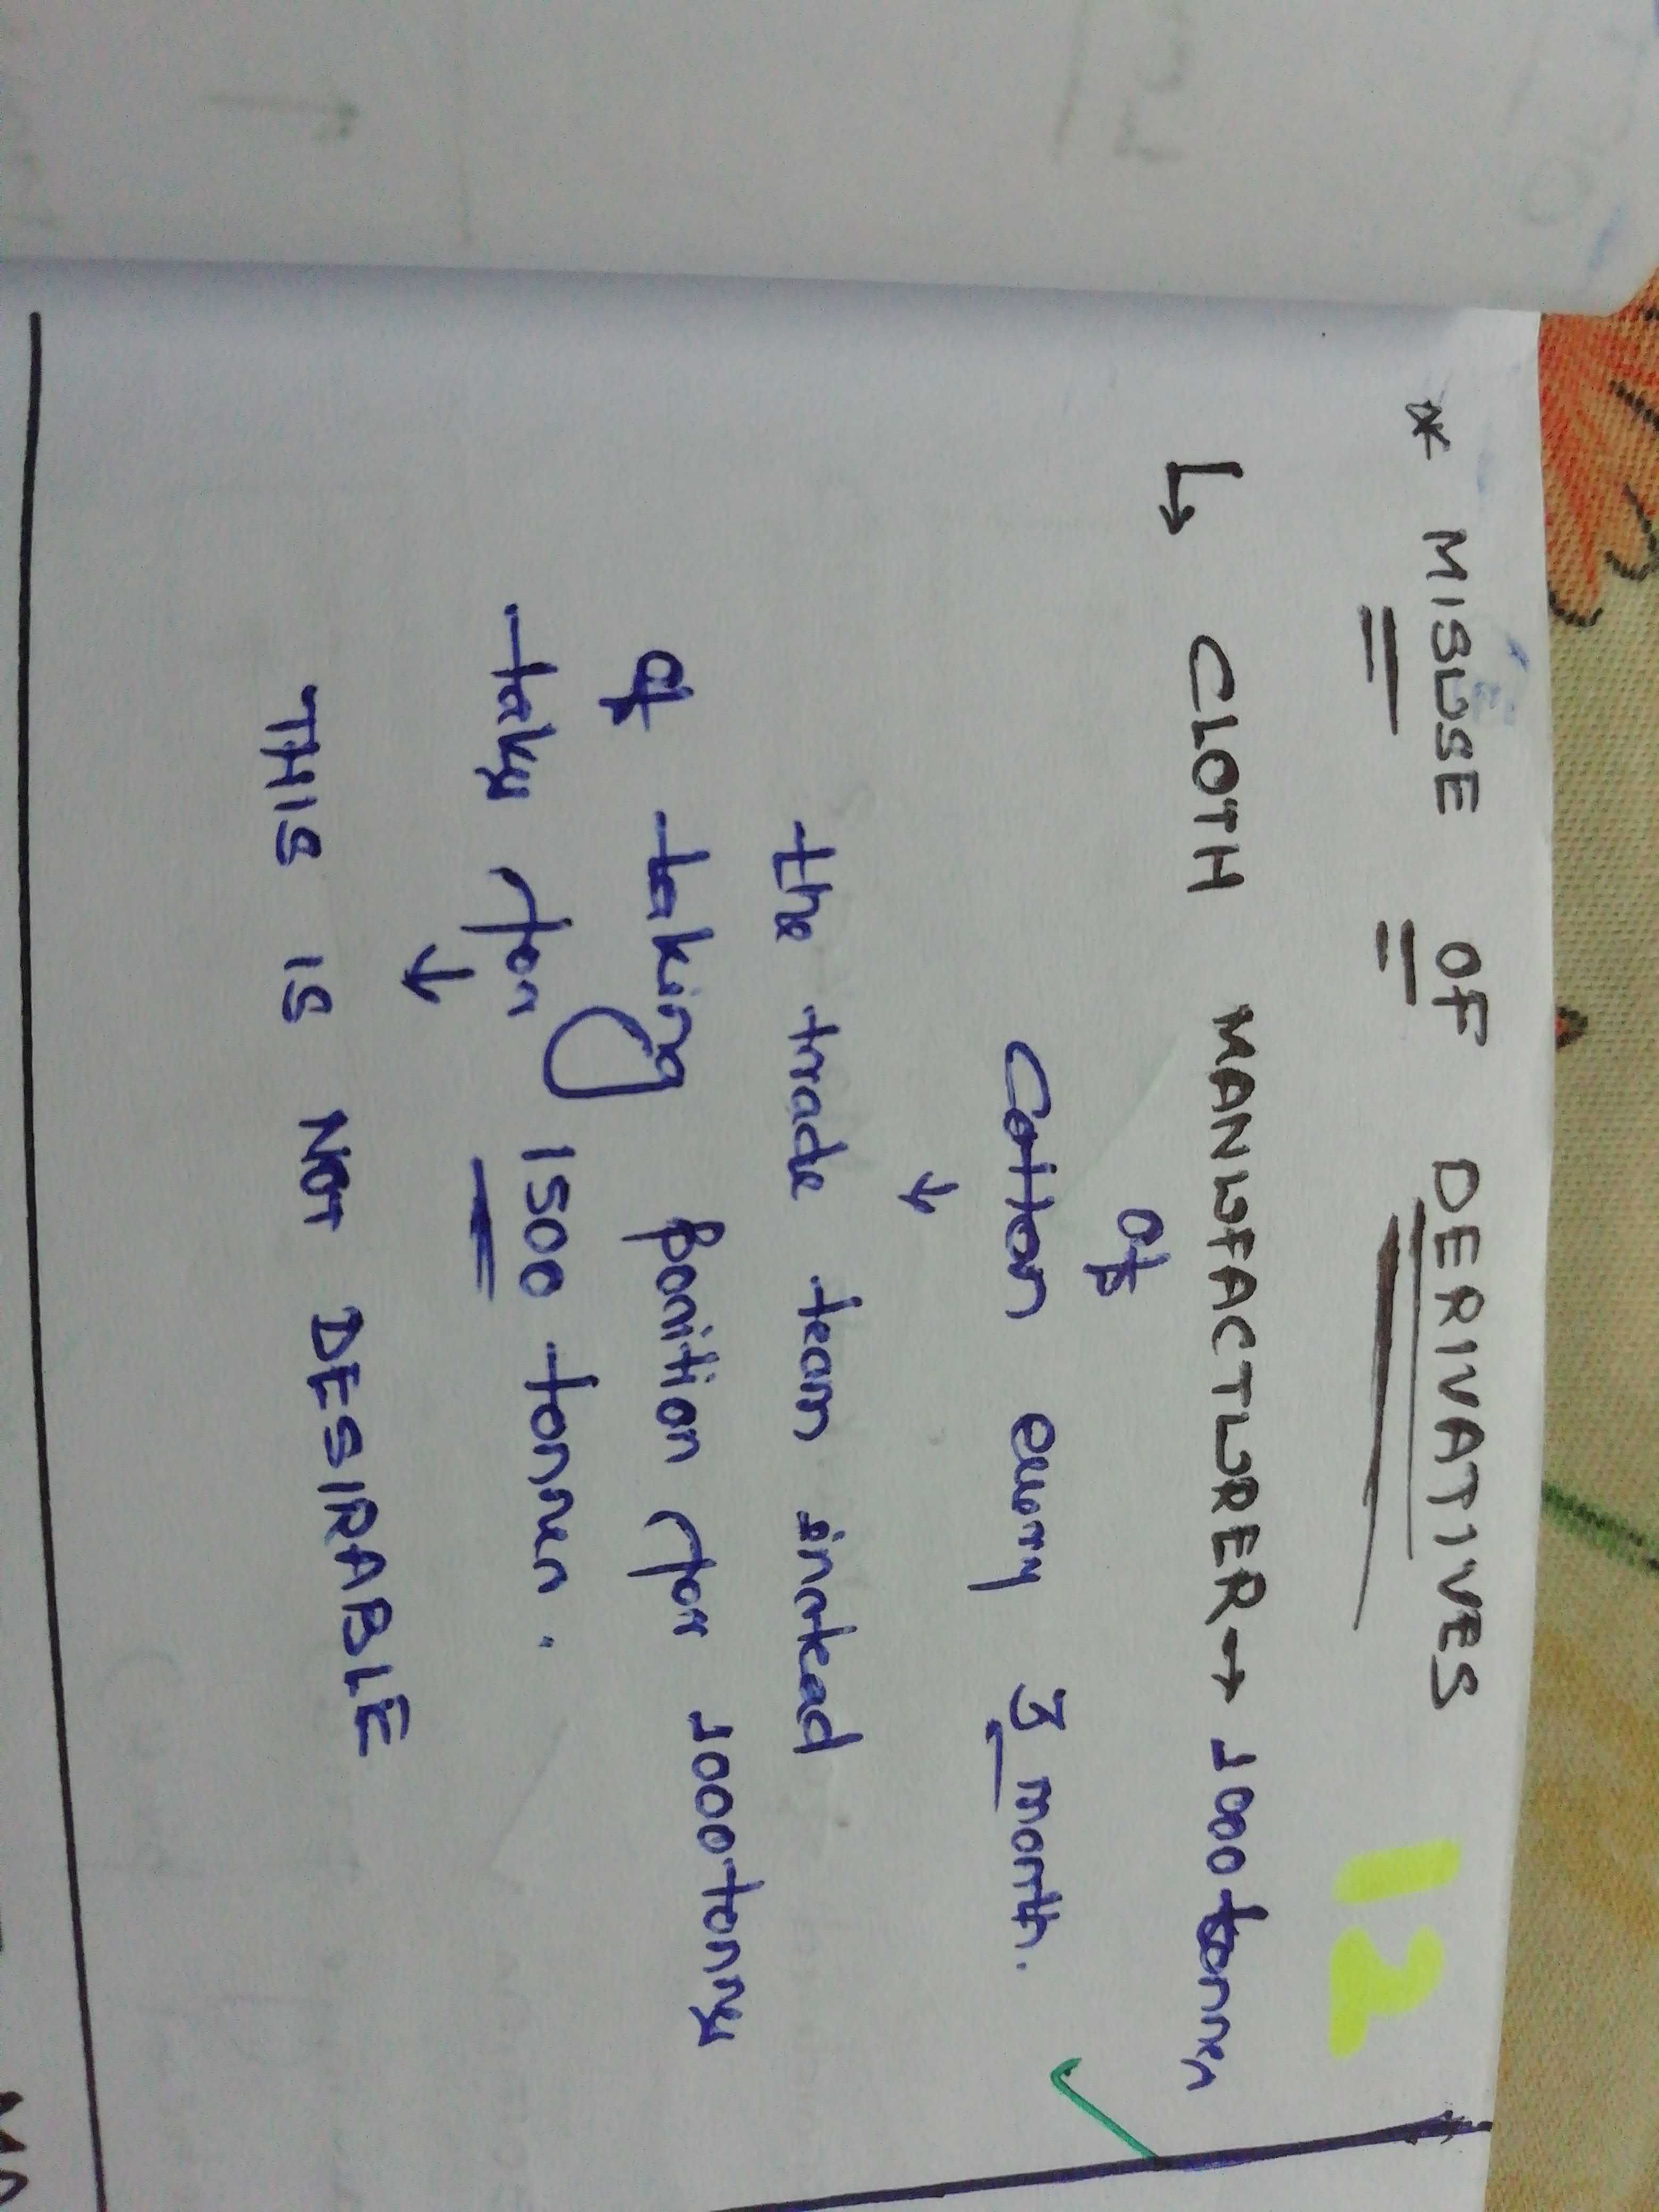 12
* MISUSE OF DERIVATIVES
↳ CLOTH MANUFACTURER → 1000 tonnes
of
Cotton every 3 month.
↓
the trade team instead
of taking position for 1000 tonnes
takes for 1500 tonnes.
↓
THIS IS NOT DESIRABLE